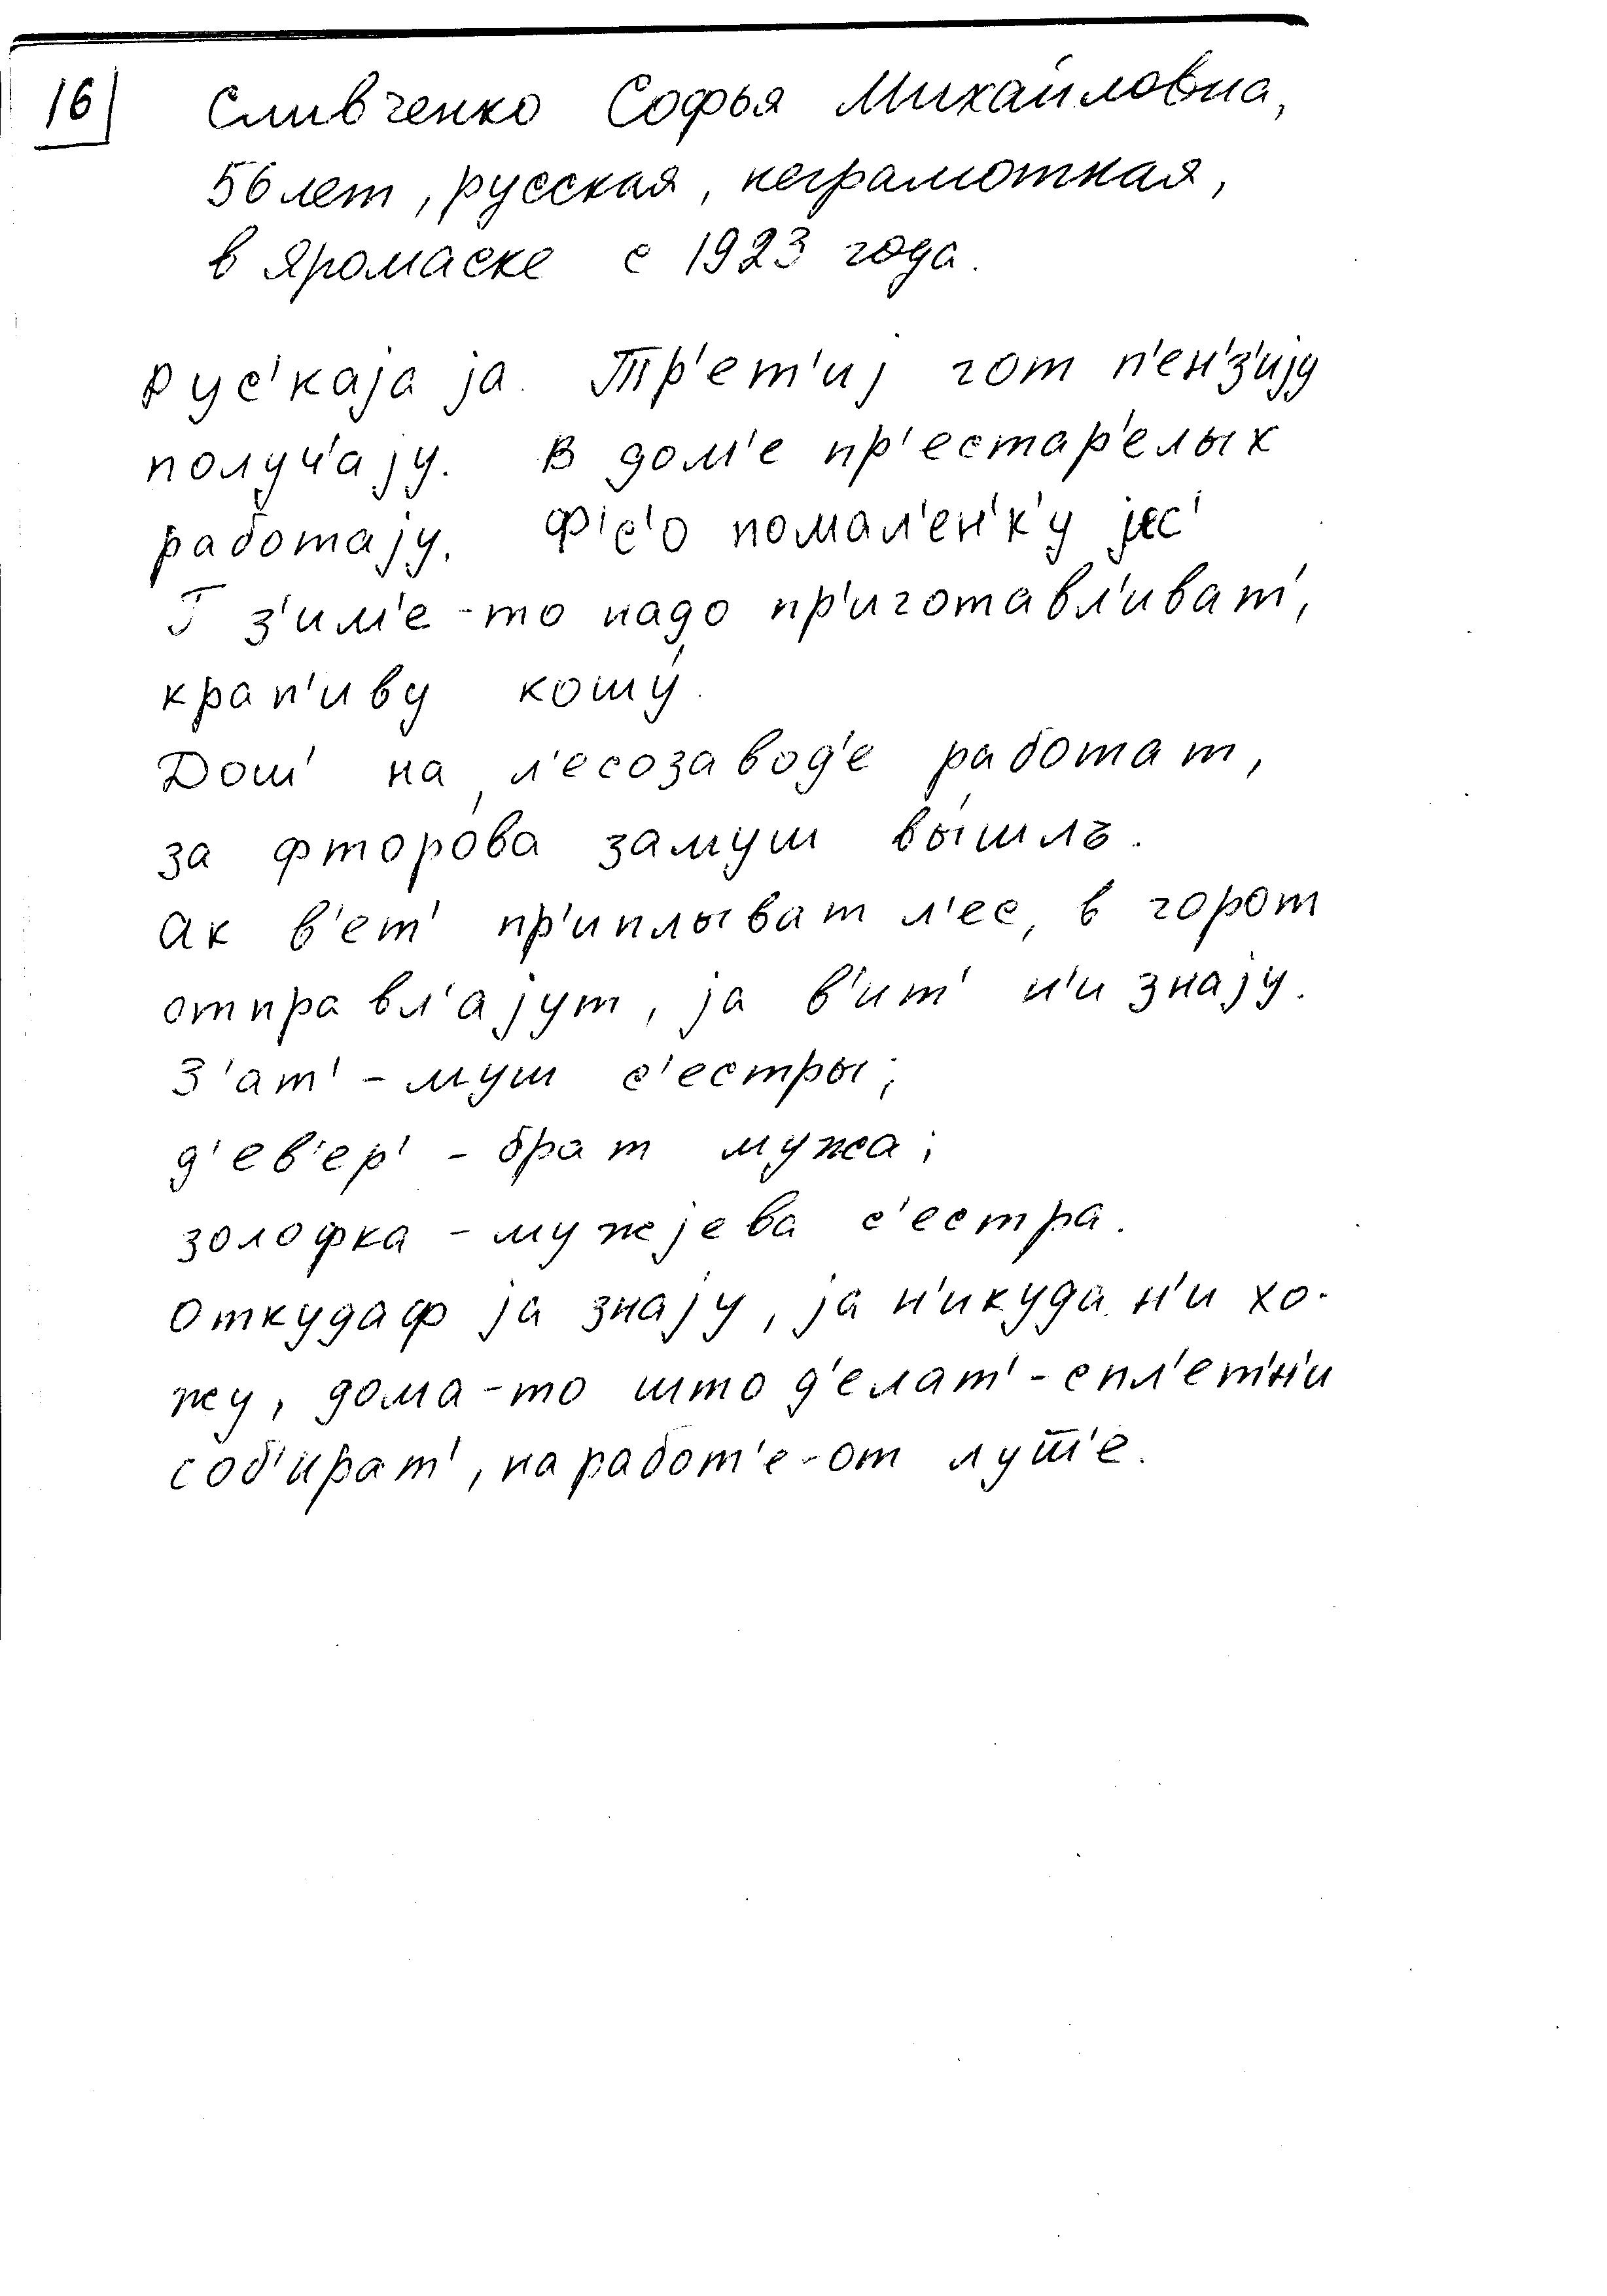 16 Сливченко Софья Михайловна,
56 лет, русская, неграмотная,
в Яромаске с 1923 года.
рус'каjа jа. Тр'ет'иj гот п'ен'з'иjу
получ'аjу. В дом'е пр'естар'елых
работаjу. Ф'с'о помал'ен'к'у jес'
Г з'им'е-то надо пр'иготавл'иват',
крап'иву кошу́.
Дош' на л'есозавод'е работат,
за фторо́ва замуш вы́шлъ.
Ак в'ет' пр'иплыват л'ес, в горот
отправл'аjут, jа в'ит' н'и знаjу.
З'ат' - муш с'естры;
д'ев'ер' - брат мужа;
золофка - мужjева с'естра.
Откудаф jа знаjу, jа н'икуда н'и хо-
жу, дома-то што д'елат' - спл'ет'н'и
соб'ират', на работ'е-от лут̅'е.